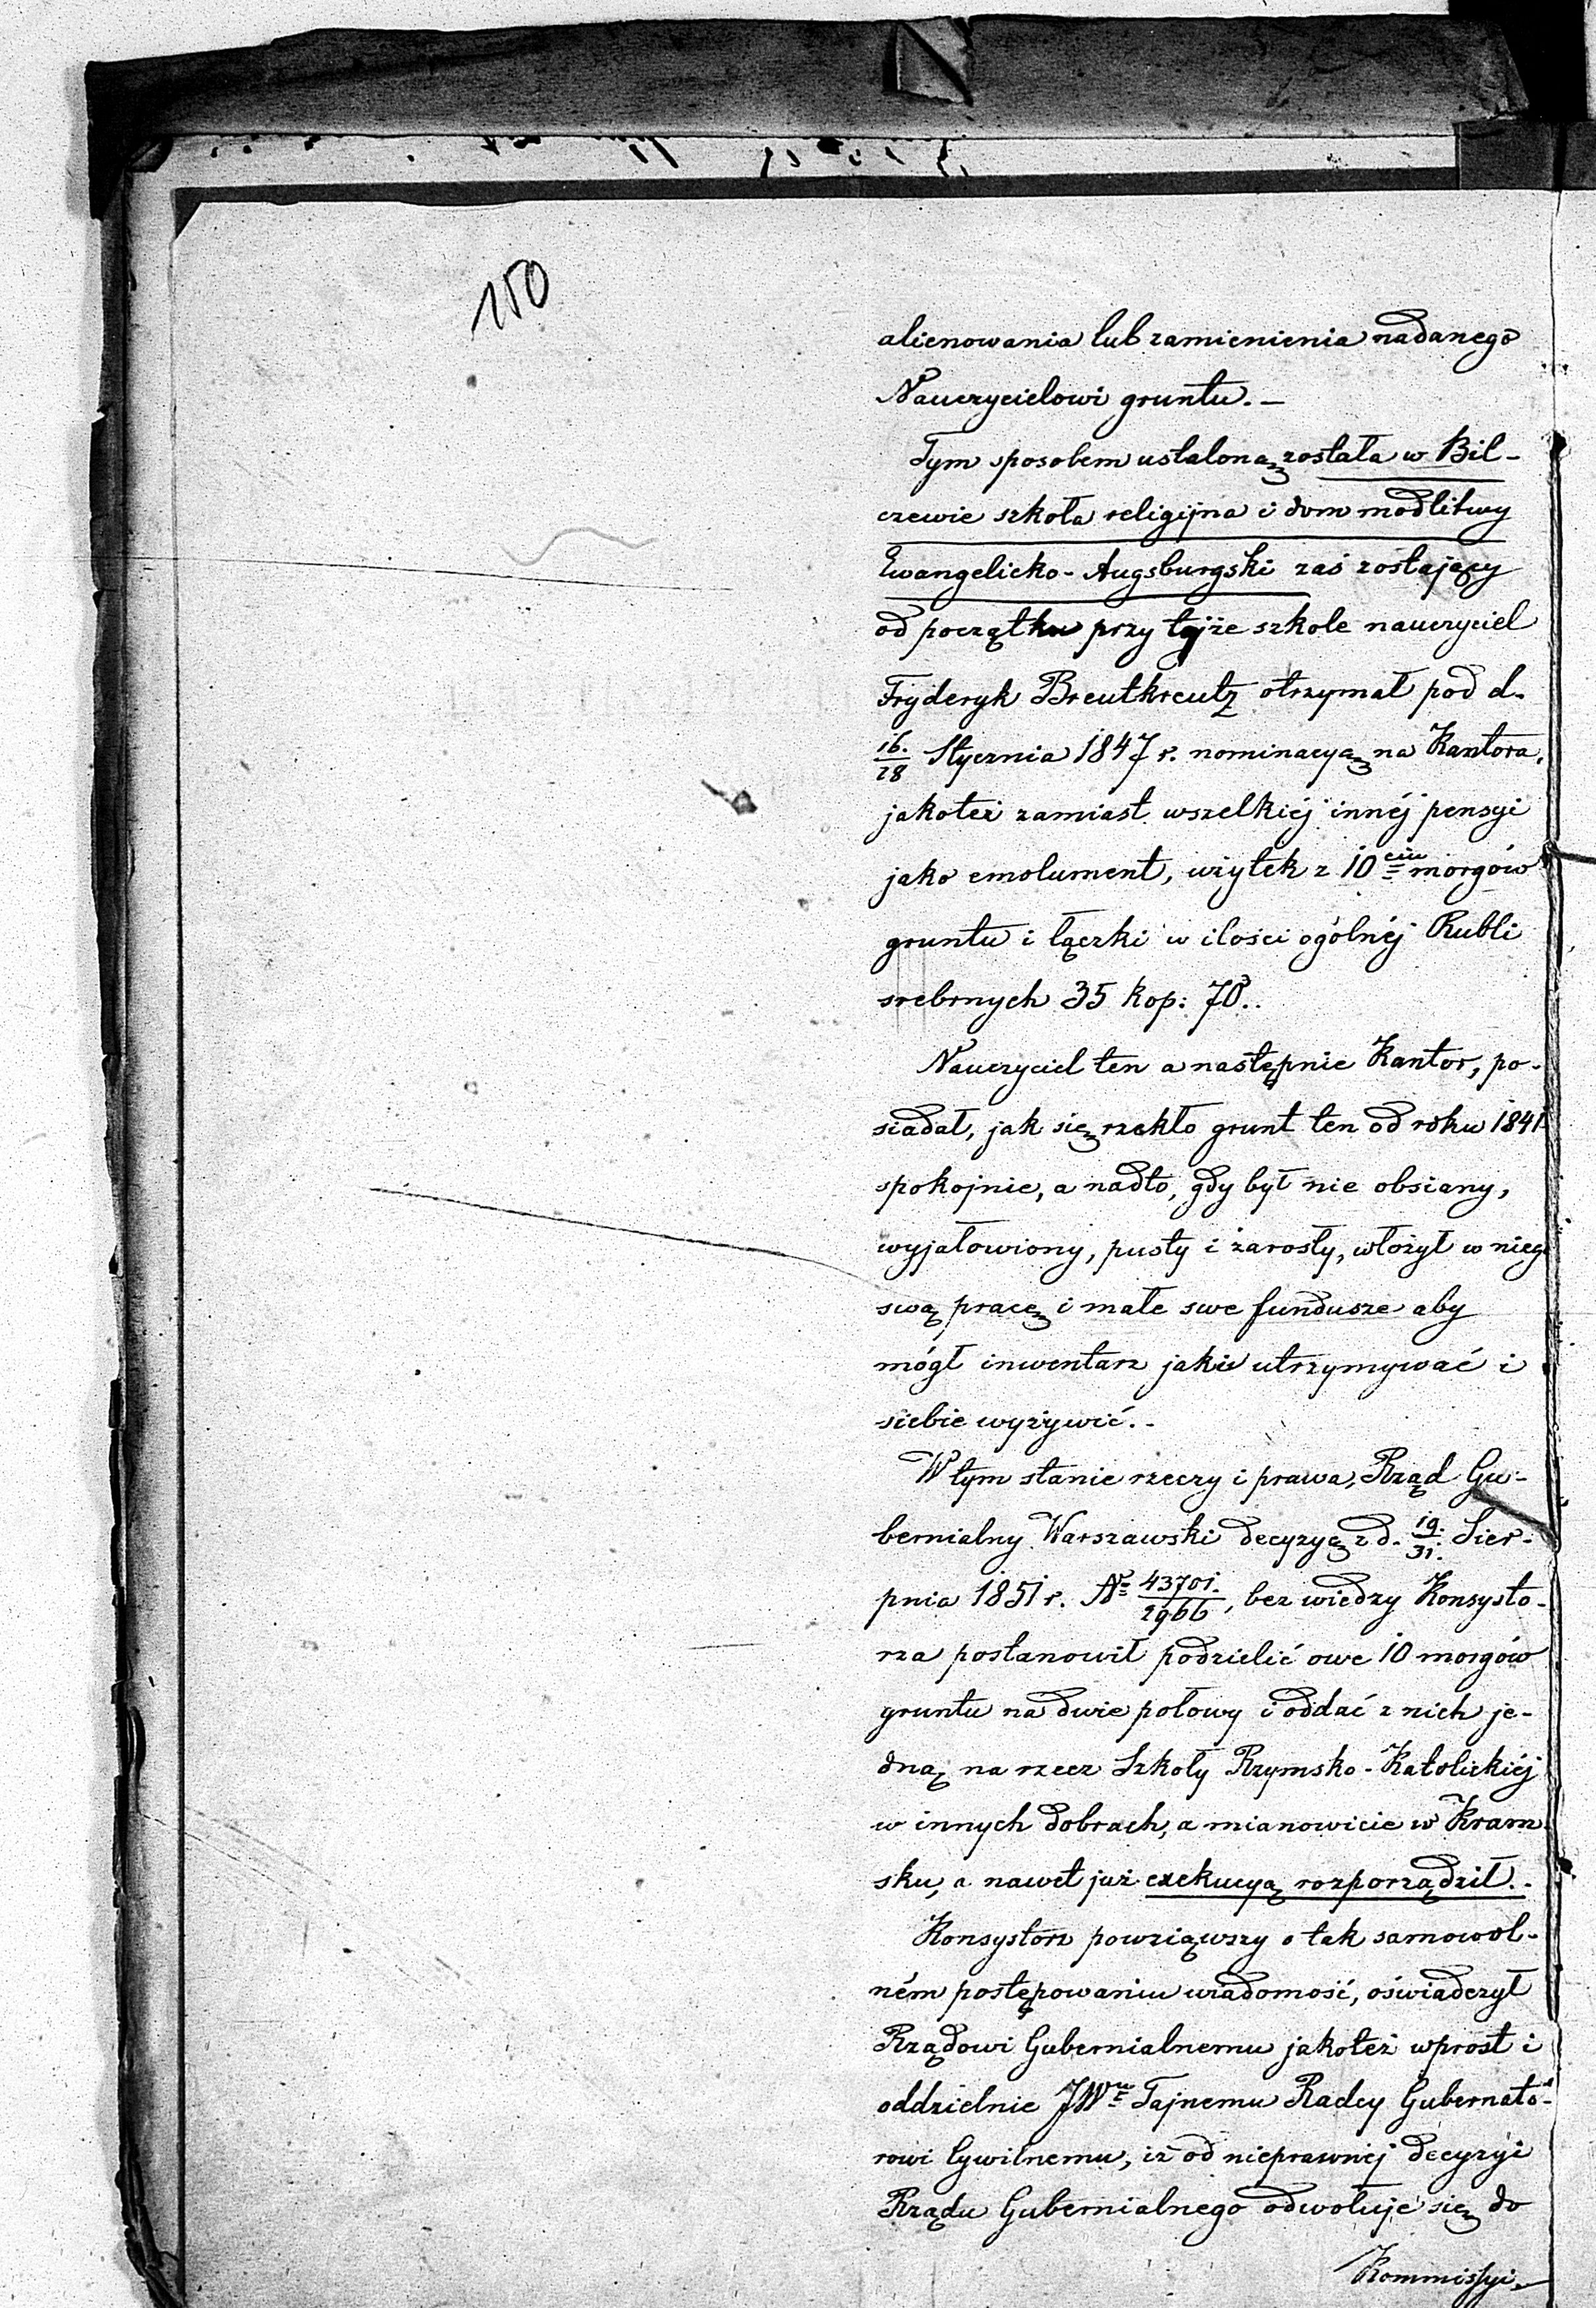 150
alienowania lub zamienienia nadanego
Nauczycielowi gruntu. —
Tym sposobem ustaloną została w Bil-
czewie szkoła religijna i dom modlitwy
Ewangelicko-Augsburgski zaś zostający
od początku przy tejże szkole nauczyciel
Fryderyk Breutkreutz otrzymał pod d.
16./28 Stycznia 1847 r. nominacyą na Kantora,
jakoteż zamiast wszelkiéj innéj pensyi
jako emolument, użytek z 10ciu morgów
gruntu i łączki w ilości ogólnéj Rubli
srebrnych 35 kop: 70..
Nauczyciel ten a następnie Kantor, po-
siadał, jak się rzekło grunt ten od roku 1841
spokojnie, a nadto, gdy był nie obsiany,
wyjałowiony, pusty i zarosły, włożył w niego
swą pracę i małe swe fundusze aby
mógł inwentarz jakiś utrzymywać i
siebie wyżywić. -
W tym stanie rzeczy i prawa, Rząd Gu-
bernialny Warszawski decyzyą z d. 19./31. Sier-
pnia 1851 r. № 43701./2966, bez wiedzy Konsysto-
rza postanowił podzielić owe 10 morgów
gruntu na dwie połowy i oddać z nich je-
dną na rzecz Szkoły Rzymsko-Katolickiéj
w innych dobrach, a mianowicie w Kram
sku, a nawet już exekucyą rozporządził. -
Konsystorz powziąwszy o tak samowol-
ném postępowaniu wiadomość, oświadczył
Rządowi Gubernialnemu jakoteż wprost i
oddzielnie JWu Tajnemu Radcy Gubernato-
rowi Cywilnemu, iż od nieprawnéj decyzyi
Rządu Gubernialnego odwołuje się do
Kommissyi